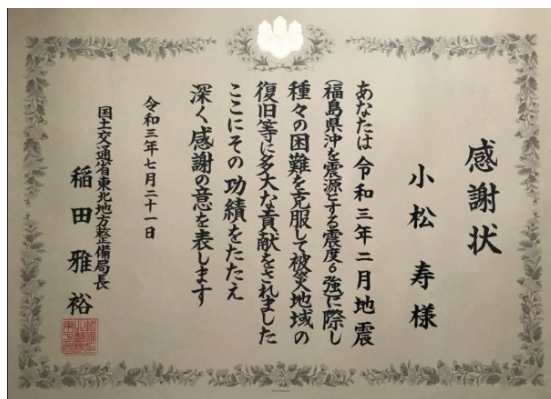 感謝状
小松 寿 様
あなたは 令和三年二月地震
(福島県沖を震源とする震度6強)に際し
種々の困難を克服して被災地域の
復旧等に多大な貢献をされました
ここにその功績をたたえ
深く感謝の意を表します
令和三年七月二十一日
国土交通省東北地方整備局長
稲田雅裕